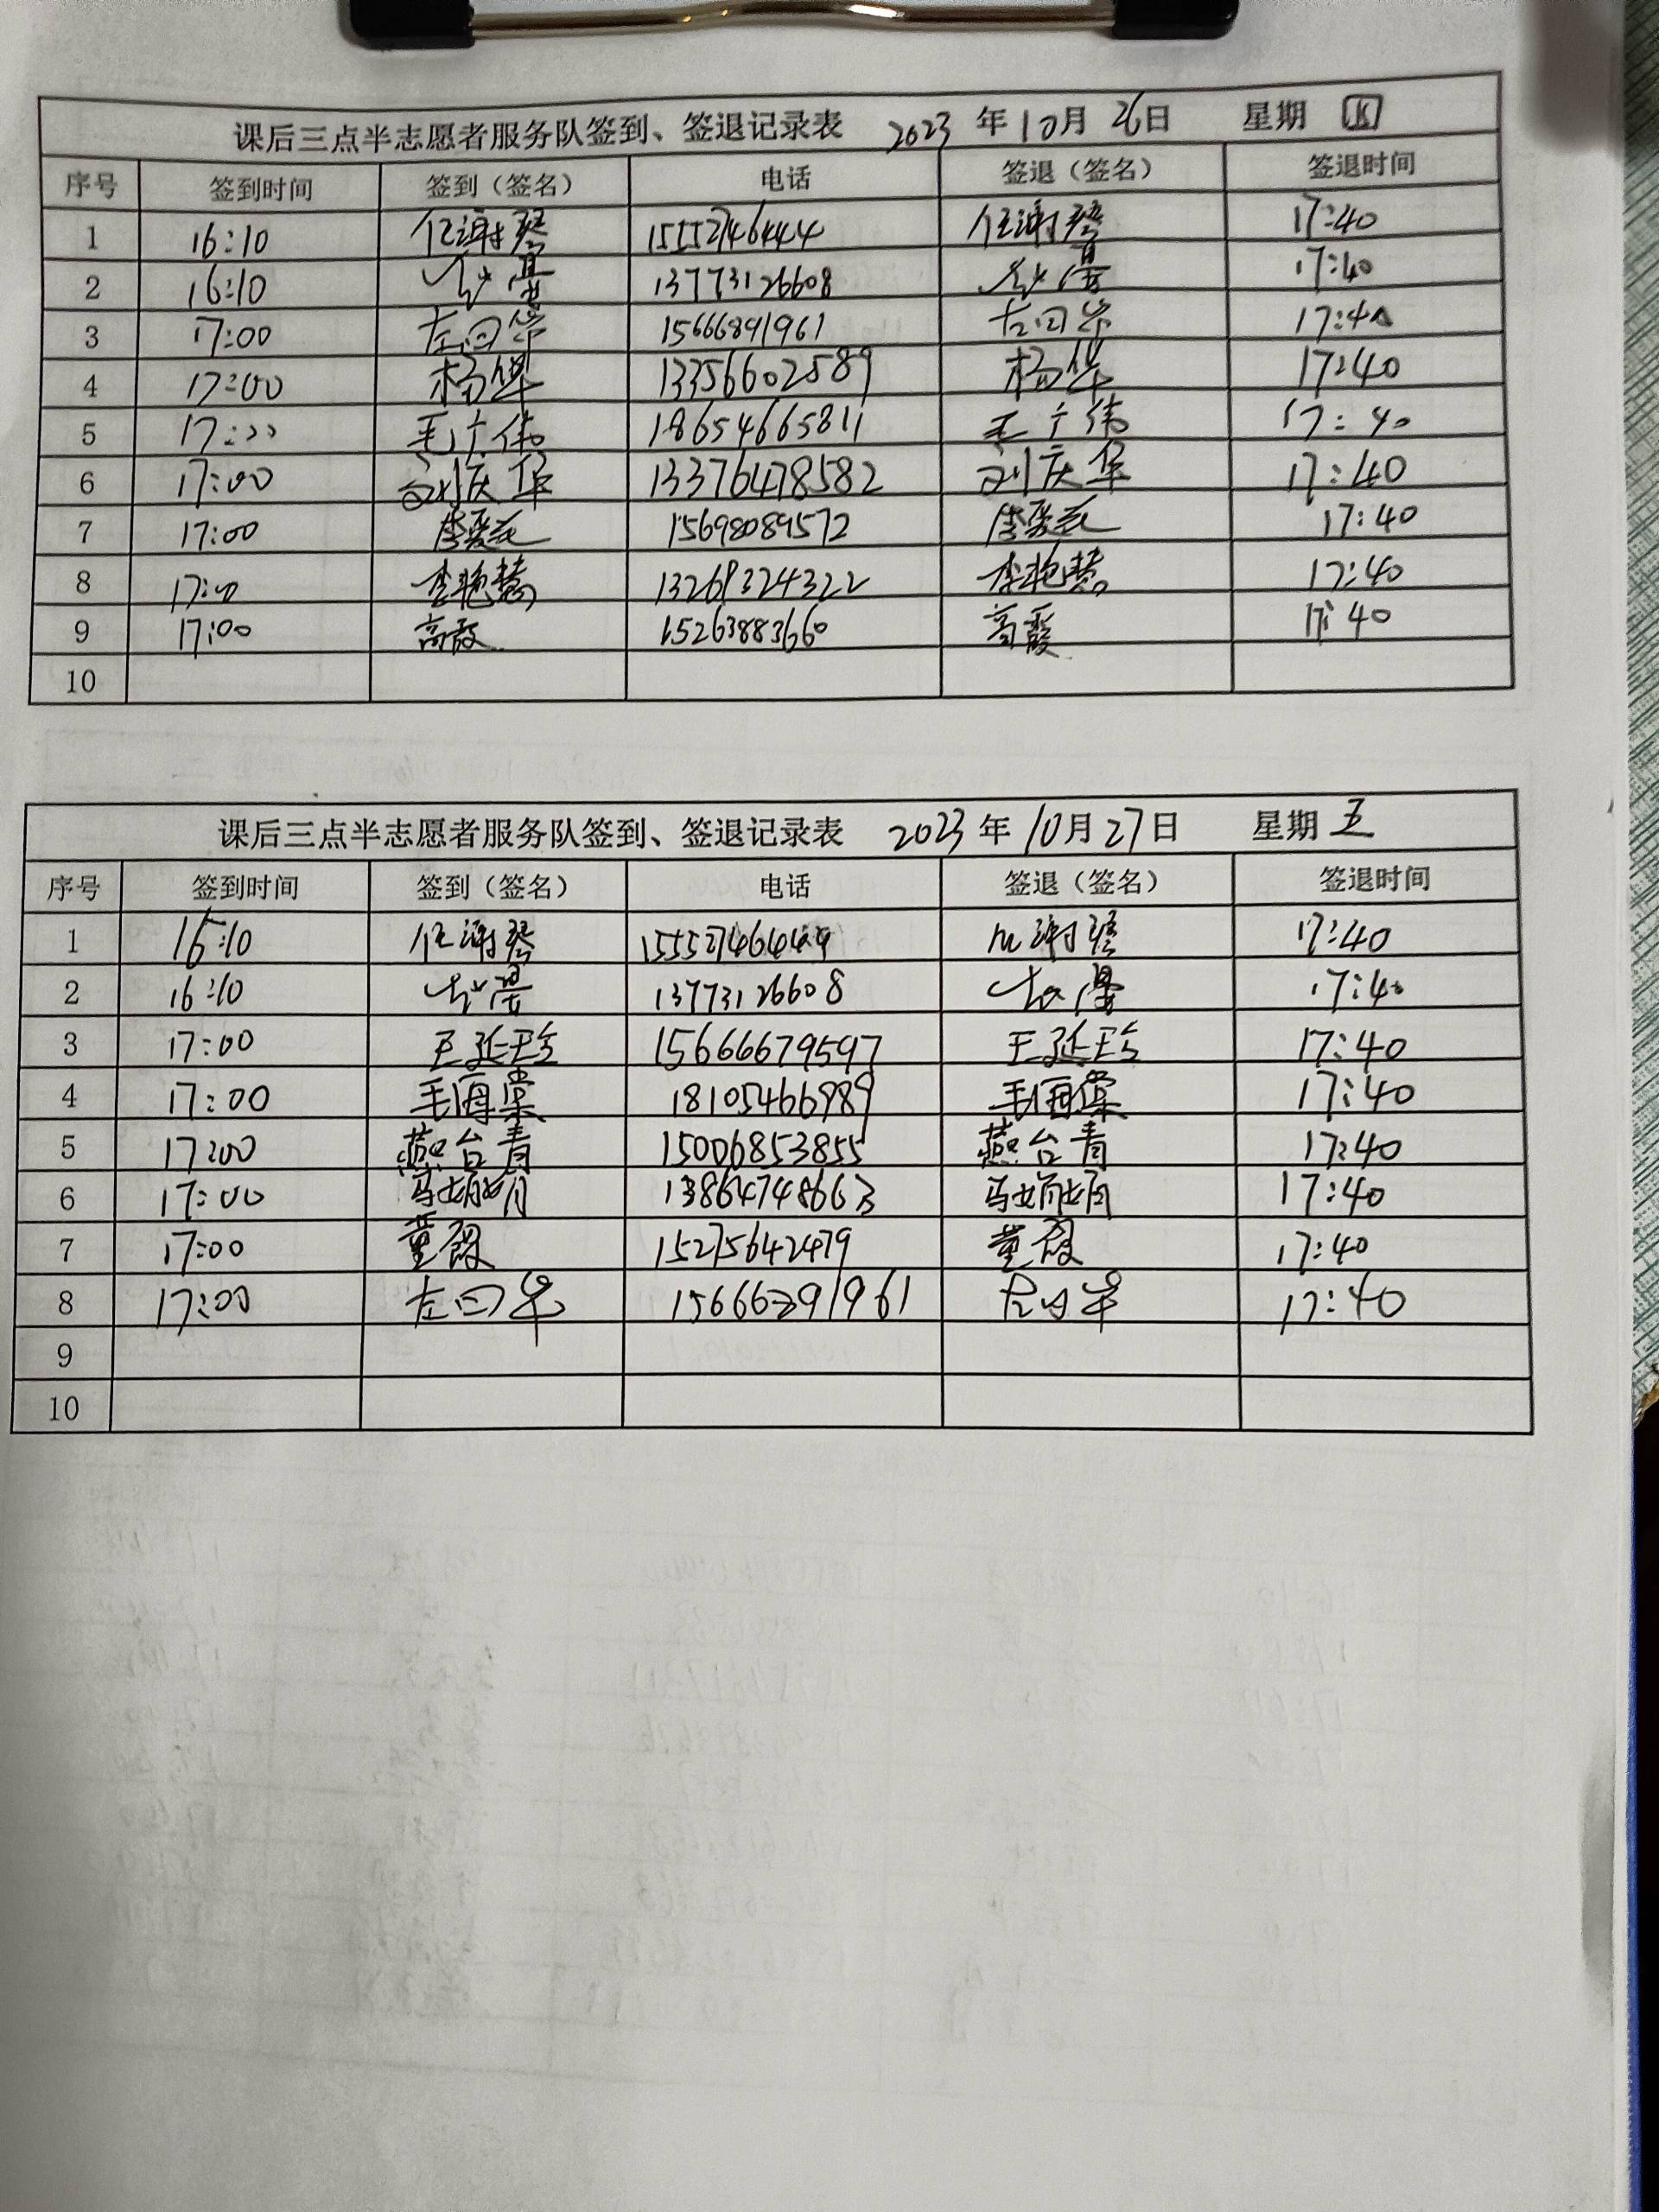 课后三点半志愿者服务队签到、签退记录表 2023 年 10 月 26 日 星期 四
序号 签到时间 签到（签名） 电话 签退（签名） 签退时间
1 16:10 任谢琴 15552746444 任谢琴 17:40
2 16:10 13773126608 17:40
3 17:00 左回华 15666891961 左回华 17:40
4 17:00 杨华 13356602589 杨华 17:40
5 17:00 毛广伟 18654665811 毛广伟 17:40
6 17:00 刘庆华 13376478582 刘庆华 17:40
7 17:00 李爱花 15698089572 李爱花 17:40
8 17:00 李艳慧 13268324322 李艳慧 17:40
9 17:00 高霞 15263883660 高霞 17:40
10
课后三点半志愿者服务队签到、签退记录表 2023 年 10 月 27 日 星期 五
序号 签到时间 签到（签名） 电话 签退（签名） 签退时间
1 16:10 任谢琴 任谢琴 17:40
2 16:10 13773126608 17:40
3 17:00 王延玲 15666679597 王延玲 17:40
4 17:00 毛海棠 18105466989 毛海棠 17:40
5 17:00 燕台青 15006853855 燕台青 17:40
6 17:00 马娟娟 13864748663 马娟娟 17:40
7 17:00 董霞 15275642479 董霞 17:40
8 17:00 左回华 15666891961 左回华 17:40
9
10